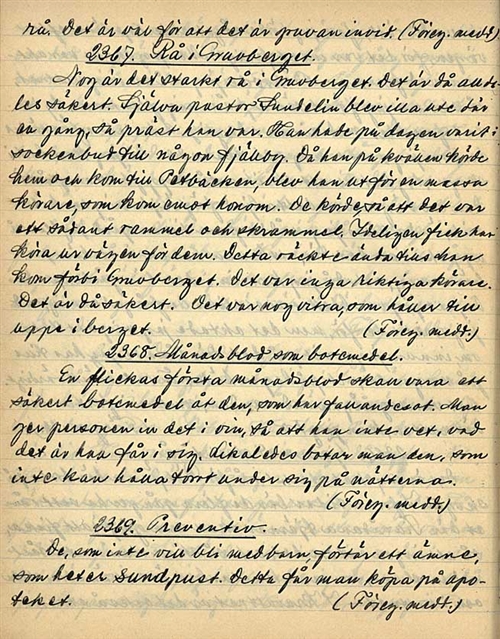 rå. Det är väl för att det är gruvan invid. (Förey. medd.)
2367. Rå i Gruvberget.
Nog är det starkt rå i Gruvberget. Det är då allde-
les säkert. Själva pastor Sundelin blev illa ute där
en gång, så präst han var. Han hade på dagen varit i
sockenbud till någon fjällby. Då han på kvällen körde
hem och kom till Petbäcken, blev han ut för en massa
körare, som kom emot honom. De körde, så att det var
ett sådant rammel och skrammel. Ideligen fick han
köra ur vägen för dem. Detta räckte ända tills han
kom förbi Gruvberget. Det var inga riktiga körare.
Det är då säkert. Det var nog vitra, som håller till
uppe i berget. (Förey. medd.)
2368. Månadsblod som botemedel.
En flickas första månadsblod skall vara ett
säkert botemedel åt den, som har fallandesot. Man
ger personen in det i vin, så att han inte vet, vad
det är han får i sig. Likaledes botar man den, som
inte kan hålla torrt under sig på nätterna.
(Förey. medd.)
2369. Preventiv.
De, som inte vill bli med barn, förtär ett ämne,
som heter Sundpust. Detta får man köpa på apo-
teket. (Förey. medd.)